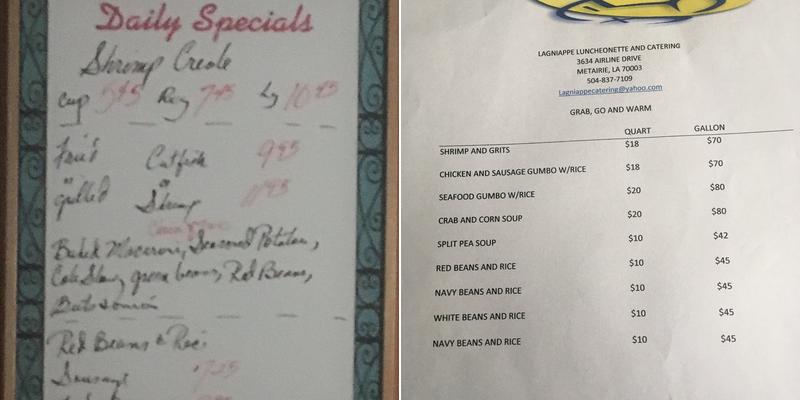 Daily Specials
Shrimp Creole
Cup 5.95 Reg 7.95 Lg 10.95
Fried Catfish 9.95
or or
grilled Shrimp 11.95
Baked Macaroni, Seasoned Potatoes,
Cole Slaw, green beans, Red Beans,
Red Beans & Rice
Sausage 7.25
LAGNIAPPE LUNCHEONETTE AND CATERING
3634 AIRLINE DRIVE
METAIRIE, LA 70003
504-837-7109
Lagniappecatering@yahoo.com
GRAB, GO AND WARM
QUART GALLON
SHRIMP AND GRITS $18 $70
CHICKEN AND SAUSAGE GUMBO W/RICE $18 $70
SEAFOOD GUMBO W/RICE $20 $80
CRAB AND CORN SOUP $20 $80
SPLIT PEA SOUP $10 $42
RED BEANS AND RICE $10 $45
NAVY BEANS AND RICE $10 $45
WHITE BEANS AND RICE $10 $45
NAVY BEANS AND RICE $10 $45